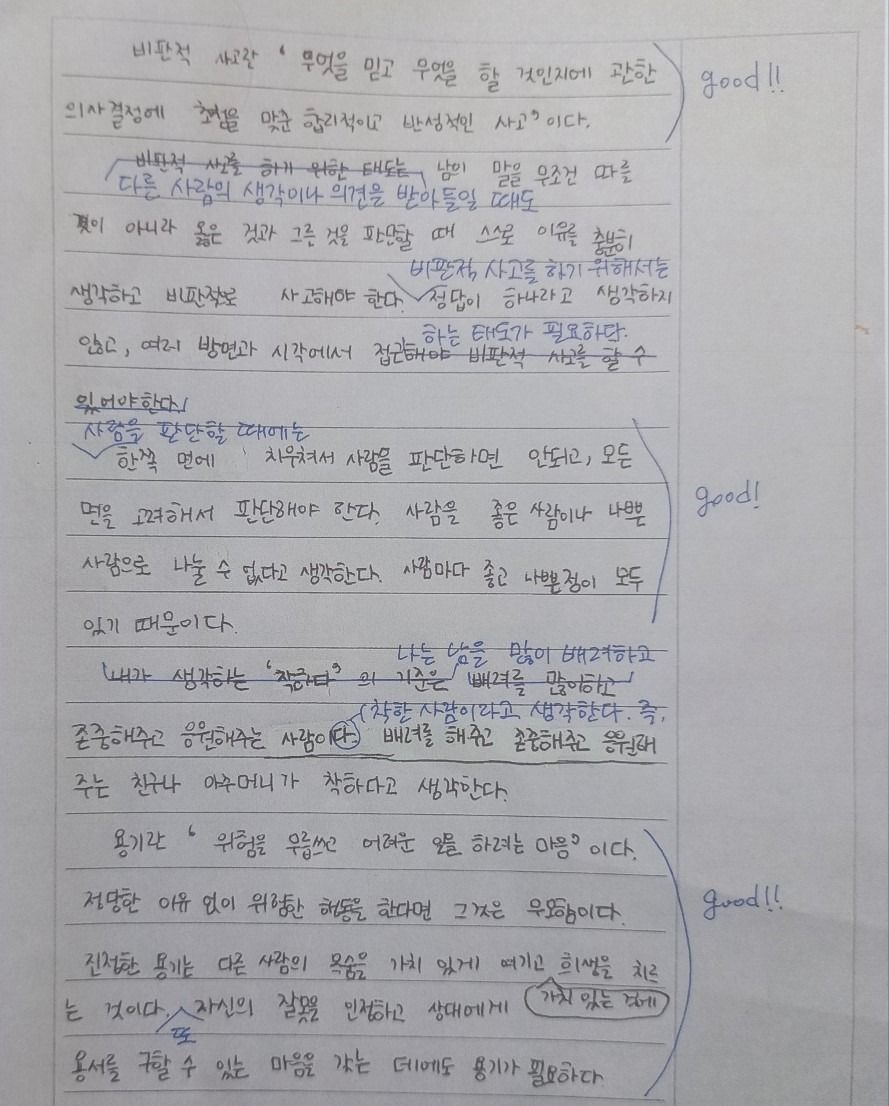 비판적 사고란 ‘무엇을 믿고 무엇을 할 것인지에 관한
good!!
의사결정에 초점을 맞춘 합리적이고 반성적인 사고’이다.
비판적 사고를 하기 위한 태도는 남의 말을 무조건 따를
다른 사람의 생각이나 의견을 받아들일 때도
것이 아니라 옳은 것과 그른 것을 판단할 때 스스로 이유를 충분히
비판적 사고를 하기 위해서는
생각하고 비판적으로 사고해야 한다. 정답이 하나라고 생각하지
하는 태도가 필요하다.
않고, 여러 방면과 시각에서 접근해야 비판적 사고를 할 수
있어야한다
사람을 판단할 때에는
한쪽 면에 치우쳐서 사람을 판단하면 안되고, 모든
good!
면을 고려해서 판단해야 한다. 사람을 좋은 사람이나 나쁜
사람으로 나눌 수 없다고 생각한다. 사람마다 좋고 나쁜점이 모두
있기 때문이다.
나는 남을 많이 배려하고
내가 생각하는 ‘착하다’의 기준은 배려를 많이하고
착한 사람이라고 생각한다. 즉,
존중해주고 응원해주는 사람이다. 배려를 해주고 존중해주고 응원해
주는 친구나 아주머니가 착하다고 생각한다.
용기란 ‘위험을 무릅쓰고 어려운 일을 하려는 마음’이다.
정당한 이유 없이 위험한 행동을 한다면 그것은 무모함이다.
good!!
진정한 용기는 다른 사람의 목숨을 가치 있게 여기고 희생을 치르
가치 있는 것에
는 것이다. 자신의 잘못을 인정하고 상대에게
또
용서를 구할 수 있는 마음을 갖는 데에도 용기가 필요하다